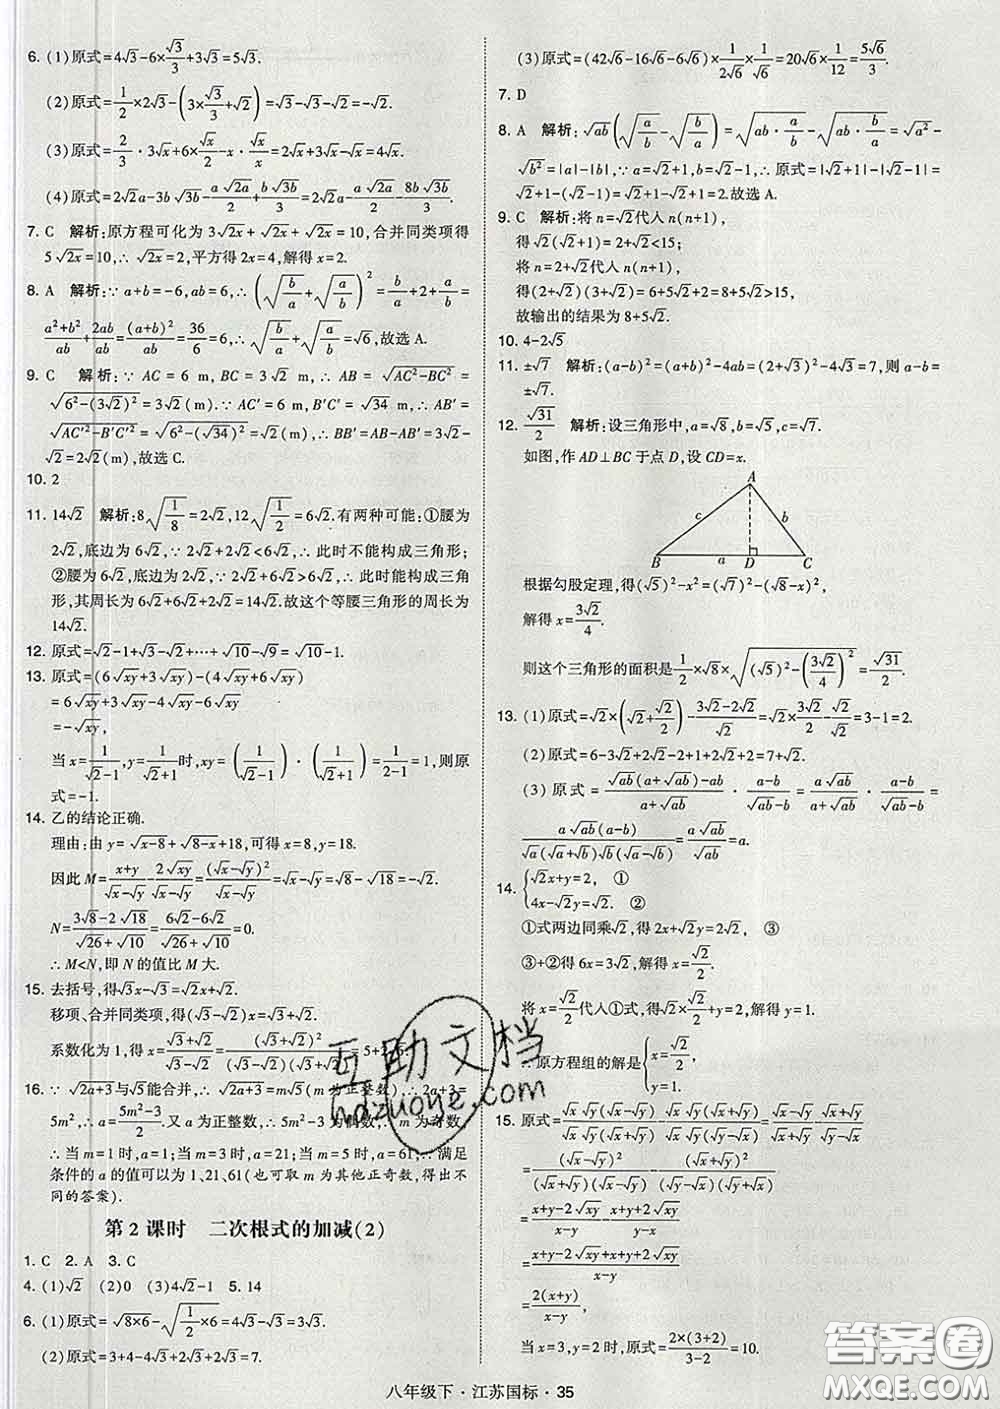 6. (1)原式=4√3-6×√3/3+3√3=5√3.
(2)原式=1/2×2√3-(3×√3/3+√2)=√3-√3-√2=-√2.
(3)原式=2/3·3√x+6×√x/2-x·√x/x=2√x+3√x-√x=4√x.
(4)原式=2√2a-3b√3b-a√2a/2+b√3b/2=2√2a-a√2a/2-8b√3b/2.
7. C 解析:原方程可化为3√2x+√2x+√2x=10,合并同类项得
5√2x=10,∴√2x=2,平方得2x=4,解得x=2.
8. A 解析:∵a+b=-6,ab=6,∴(√(b/a)+√(a/b))²=b/a+2+a/b=
(a²+b²)/ab+2ab/ab=(a+b)²/ab=36/6=6,∴√(b/a)+√(a/b)=√6,故选A.
9. C 解析:∵AC=6 m,BC=3√2 m,∴AB=√(AC²-BC²)=
√(6²-(3√2)²)=3√2(m).∵AC′=6 m,B′C′=√34 m,∴AB′=
√(AC′²-B′C′²)=√(6²-(√34)²)=√2(m),∴BB′=AB-AB′=3√2-
√2=2√2(m),故选C.
10. 2
11. 14√2 解析:8√(1/8)=2√2,12√(1/2)=6√2.有两种可能:①腰为
2√2,底边为6√2,∵2√2+2√2<6√2,∴此时不能构成三角形;
②腰为6√2,底边为2√2,∵6√2+2√2>6√2,∴此时能构成三角
形,其周长为6√2+6√2+2√2=14√2.故这个等腰三角形的周长为
14√2.
12. 原式=√2-1+√3-√2+…+√10-√9=√10-1.
13. 原式=(6√xy+3√xy)-(4√xy+6√xy)
=6√xy+3√xy-4√xy-6√xy
=-√xy,
当x=1/(√2-1),y=1/(√2+1)时,xy=(1/(√2-1))·(1/(√2+1))=1/(2-1)=1,则原
式=-1.
14. 乙的结论正确.
理由:由y=√(x-8)+√(8-x)+18,可得x=8,y=18.
因此M=(x+y)/(√x-√y)-2√xy/(√x-√y)=(√x-√y)²/(√x-√y)=√x-√y=√8-√18=-√2.
N=(3√8-2√18)/(√26+√10)=(6√2-6√2)/(√26+√10)=0.
∴M<N,即N的值比M大.
15. 去括号,得√3x-√3=√2x+√2.
移项、合并同类项,得(√3-√2)x=√3+√2.
系数化为1,得x=(√3+√2)/(√3-√2)=
16. ∵√(2a+3)与√5能合并,∴√(2a+3)=m√5(m为正整数),∴2a+3=
5m²,∴a=(5m²-3)/2.又a为正整数,∴5m²-3为偶数,∴m为奇数,
∴当m=1时,a=1;当m=3时,a=21;当m=5时,a=61,∴满足
条件的a的值可以为1,21,61(也可以m为其他正奇数,得出不
同的答案).
第2课时 二次根式的加减(2)
1. C 2. A 3. C
4. (1)√2 (2)0 (3)4√2-1 5. 14
6. (1)原式=√(8×6)-√(1/2×6)=4√3-√3=3√3.
(2)原式=3+4-4√3-2√3+2√3=7.
(3)原式=(42√6-16√6-6√6)×1/(2√6)×√(1/6)=20√6×1/12=5√6/3.
7. D
8. A 解析:√ab(√(a/b)-√(b/a))=√(ab·a/b)-√(ab·b/a)=√a²-
√b²=|a|-|b|,∵a=√2+1,b=√2-1,∴原式=|√2+1|-|√2-1|=
√2+1-(√2-1)=√2+1-√2+1=2.故选A.
9. C 解析:将n=√2代入n(n+1),
得√2(√2+1)=2+√2<15;
将n=2+√2代入n(n+1),
得(2+√2)(3+√2)=6+5√2+2=8+5√2>15,
故输出的结果为8+5√2.
10. 4-2√5
11. ±√7 解析:(a-b)²=(a+b)²-4ab=(2+√3)²-4√3=7,则a-b=
±√7.
12. √31/2 解析:设三角形中,a=√8,b=√5,c=√7.
如图,作AD⊥BC于点D,设CD=x.
A
c b
B a D C
根据勾股定理,得(√5)²-x²=(√7)²-(√8-x)²,
解得x=3√2/4.
则这个三角形的面积是1/2×√8×√((√5)²-(3√2/4)²)=√31/2.
13. (1)原式=√2×(√2+√2/2)-(3√2-2√2)/√2=√2×3√2/2-√2/√2=3-1=2.
(2)原式=6-3√2+2√2-2+1+2√2+2=7+√2.
(3)原式=(√ab(a+√ab)-ab)/(a+√ab)·(a-b)/(√ab-b)=a√ab/(a+√ab)·(a-b)/(√ab-b)=
a√ab(a-b)/(√a(√a+√b)√b(√a-√b))=a√ab/√ab=a.
14. {√2x+y=2, ①
4x-√2y=√2. ②
①式两边同乘√2,得2x+√2y=2√2, ③
③+②得6x=3√2,解得x=√2/2.
将x=√2/2代入①式,得√2×√2/2+y=2,解得y=1.
∴原方程组的解是{x=√2/2,
y=1.
15. 原式=
=(√x-√y)²/((√x+√y)(√x-√y))+(√x+√y)²/
=(x+y-2√xy)/(x-y)+(x+y+2√xy)/(x-y)
=(x+y-2√xy+x+y+2√xy)/(x-y)
=2(x+y)/(x-y),
当x=3,y=2时,原式=2×(3+2)/(3-2)=10.
互助文档
hdzuoye.com
答案圈
MXQE.COM
八年级下·江苏国标·35